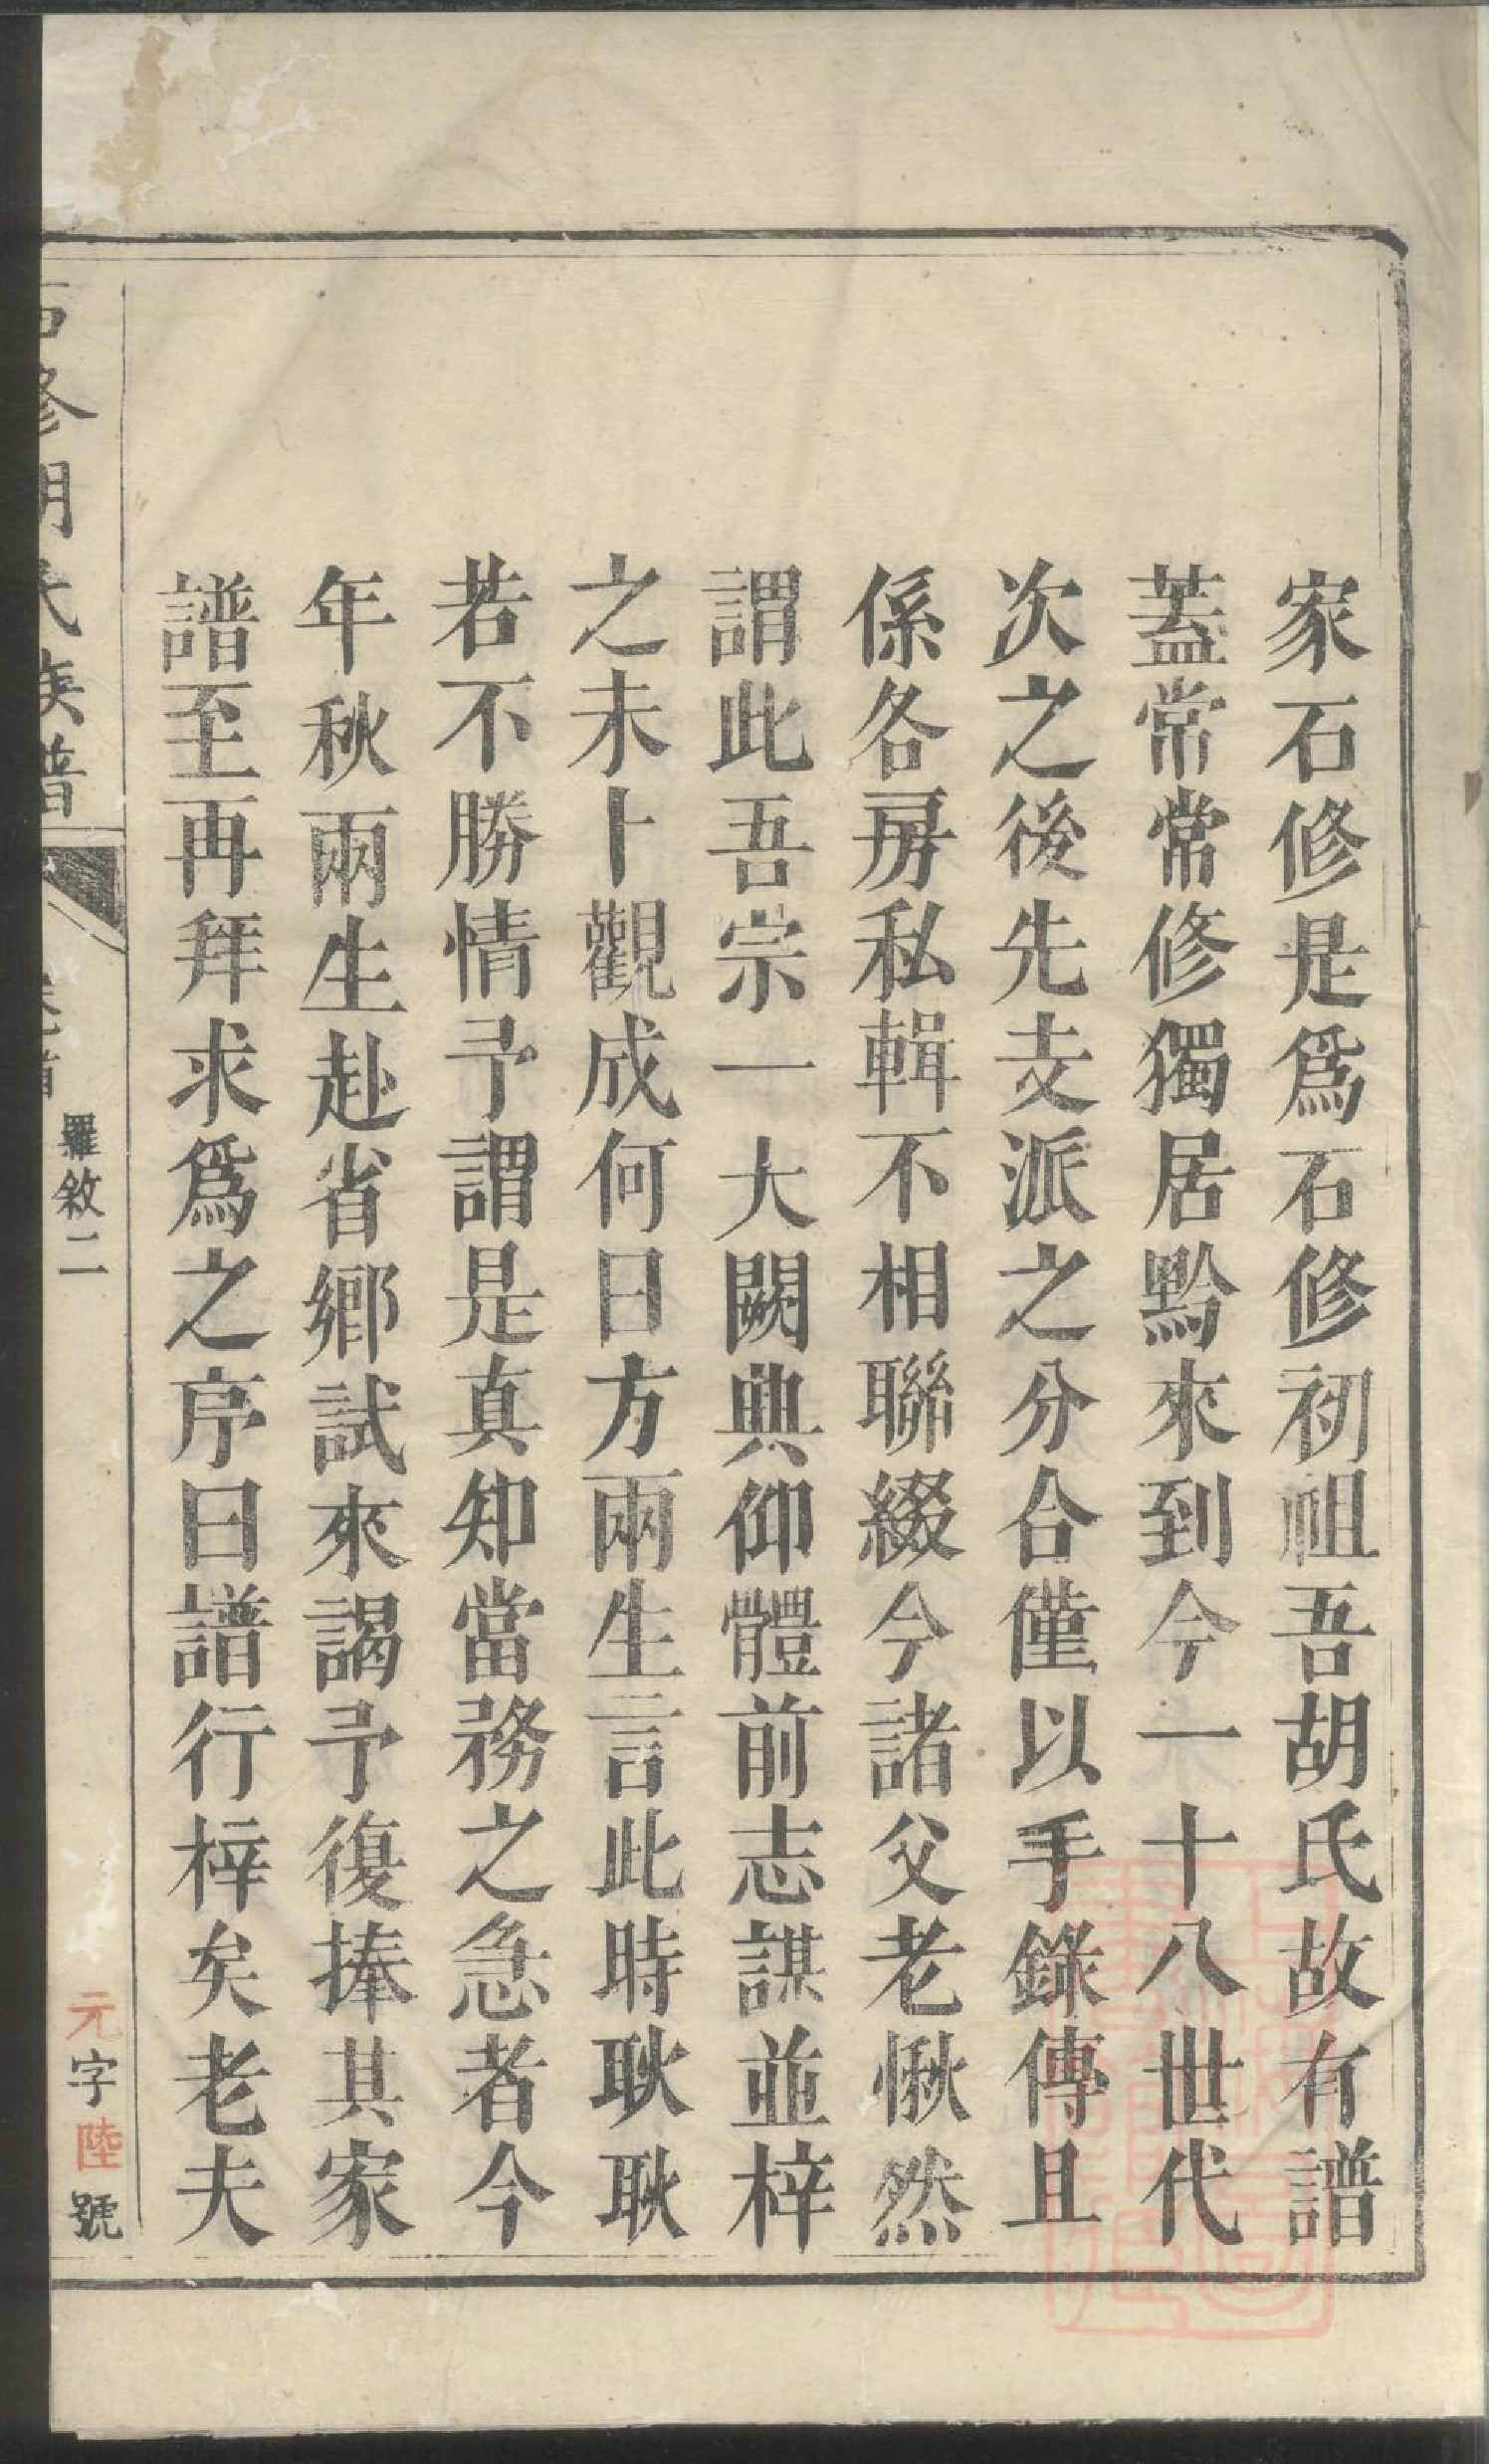 家石修是爲石修初祖吾胡氏故有譜
蓋常常修獨居黔來到今一十八世代
次之後先支派之分合僅以手錄傳且
係各房私輯不相聯綴今諸父老愀然
謂此吾宗一大闕典仰體前志謀並梓
之未卜觀成何日方兩生言此時耿耿
若不勝情予謂是真知當務之急者今
年秋兩生赴省鄉試來謁予復捧其家
譜至再拜求爲之序曰譜行梓矣老夫
石修胡氏族譜
卷首
羅敘二
元字陸號